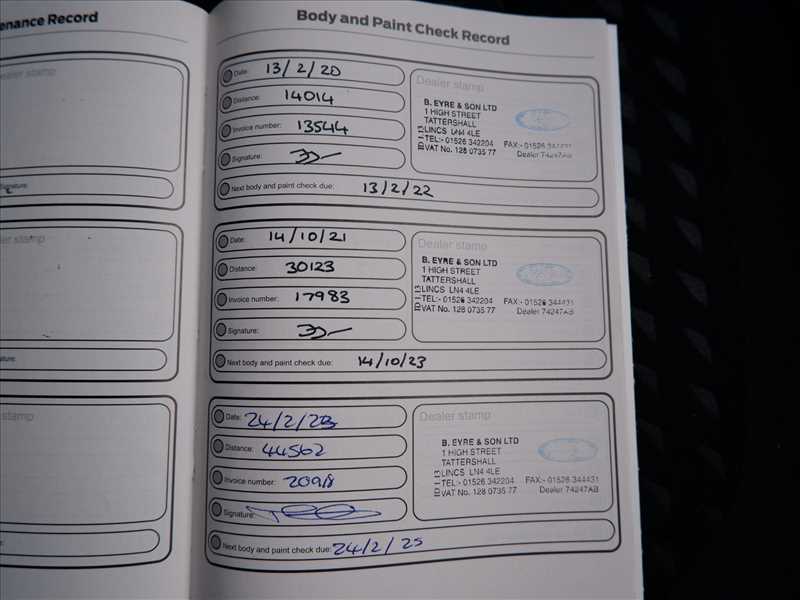 enance Record
Body and Paint Check Record
Dealer stamp
Signature:
Date: 13/2/20
Distance: 14014
Invoice number: 13544
Signature:
Next body and paint check due: 13/2/22
Dealer stamp
B. EYRE & SON LTD
1 HIGH STREET
TATTERSHALL
LINCS LN4 4LE
TEL:- 01526 342204 FAX:- 01526 344431
VAT No. 128 0735 77 Dealer 74247AB
er stamp
ature:
Date: 14/10/21
Distance: 30123
Invoice number: 17983
Signature:
Next body and paint check due: 14/10/23
Dealer stamp
B. EYRE & SON LTD
1 HIGH STREET
TATTERSHALL
LINCS LN4 4LE
TEL:- 01526 342204 FAX:- 01526 344431
VAT No. 128 0735 77 Dealer 74247AB
stamp
Date: 24/2/23
Distance: 44562
Invoice number: 20918
Signature:
Next body and paint check due: 24/2/25
Dealer stamp
B. EYRE & SON LTD
1 HIGH STREET
TATTERSHALL
LINCS LN4 4LE
TEL:- 01526 342204 FAX:- 01526 344431
VAT No. 128 0735 77 Dealer 74247AB